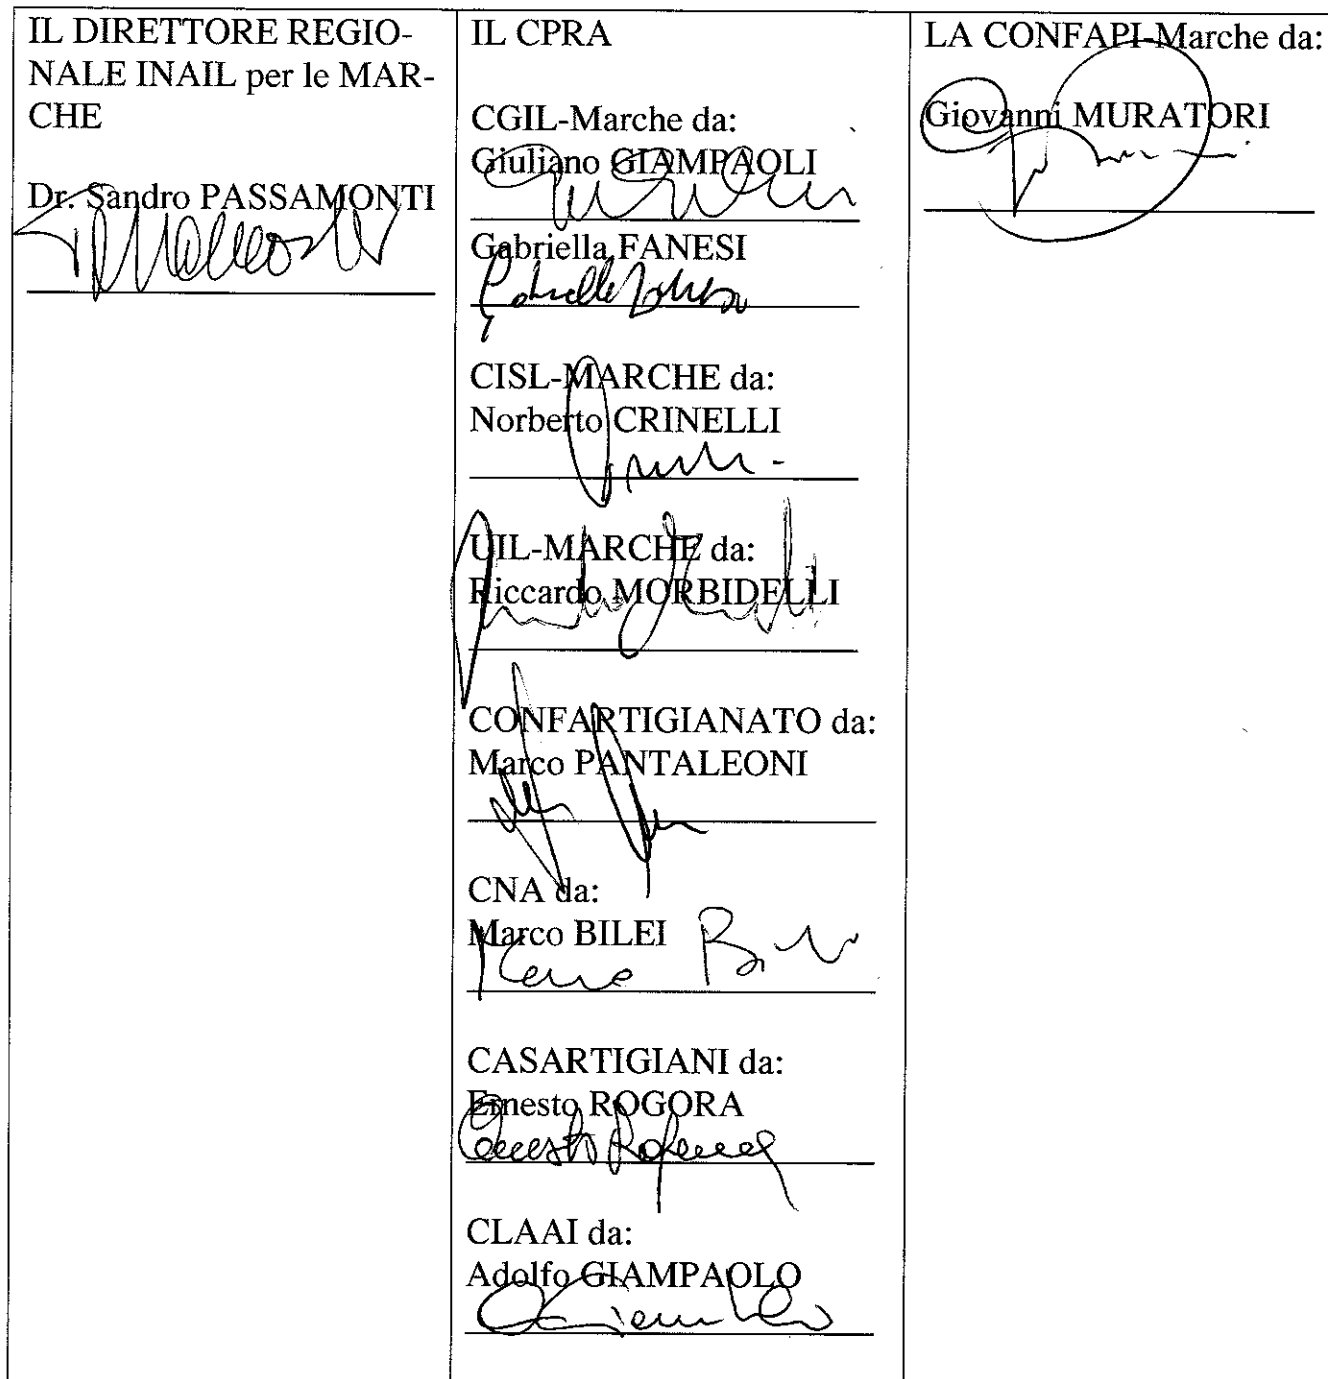 IL DIRETTORE REGIO-
NALE INAIL per le MAR-
CHE
Dr. Sandro PASSAMONTI
IL CPRA
CGIL-Marche da:
Giuliano GIAMPAOLI
Gabriella FANESI
CISL-MARCHE da:
Norberto CRINELLI
UIL-MARCHE da:
Riccardo MORBIDELLI
CONFARTIGIANATO da:
Marco PANTALEONI
CNA da:
Marco BILEI
CASARTIGIANI da:
Ernesto ROGORA
CLAAI da:
Adolfo GIAMPAOLO
LA CONFAPI-Marche da:
Giovanni MURATORI